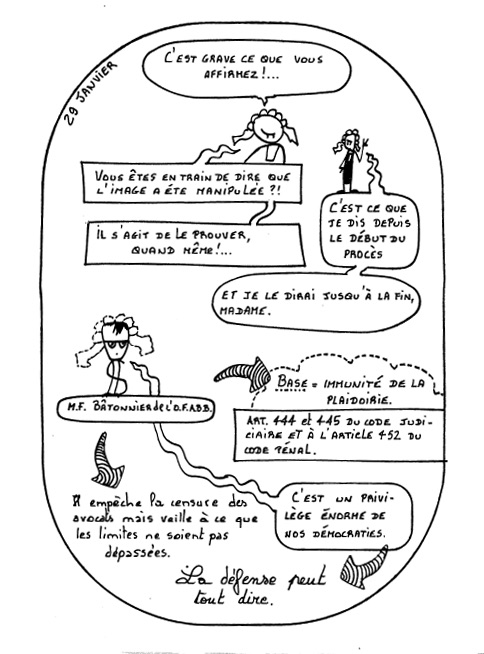 29 JANVIER
C'EST GRAVE CE QUE VOUS
AFFIRMEZ!...
VOUS ÊTES EN TRAIN DE DIRE QUE
L'IMAGE A ÉTÉ MANIPULÉE ?!
IL S'AGIT DE LE PROUVER,
QUAND MÊME!...
C'EST CE QUE
JE DIS DEPUIS
LE DÉBUT DU
PROCÈS
ET JE LE DIRAI JUSQU'À LA FIN,
MADAME.
M.F. BÂTONNIER de L'O.F.A.B.B.
BASE = IMMUNITÉ DE LA
PLAIDOIRIE.
ART. 444 et 445 DU CODE JUDI-
CIAIRE ET À L'ARTICLE 452 DU
CODE PÉNAL.
Il empêche la censure des
avocats mais veille à ce que
les limites ne soient pas
dépassées.
C'EST UN PRIVI-
LÈGE ÉNORME DE
NOS DÉMOCRATIES.
La défense peut
tout dire.